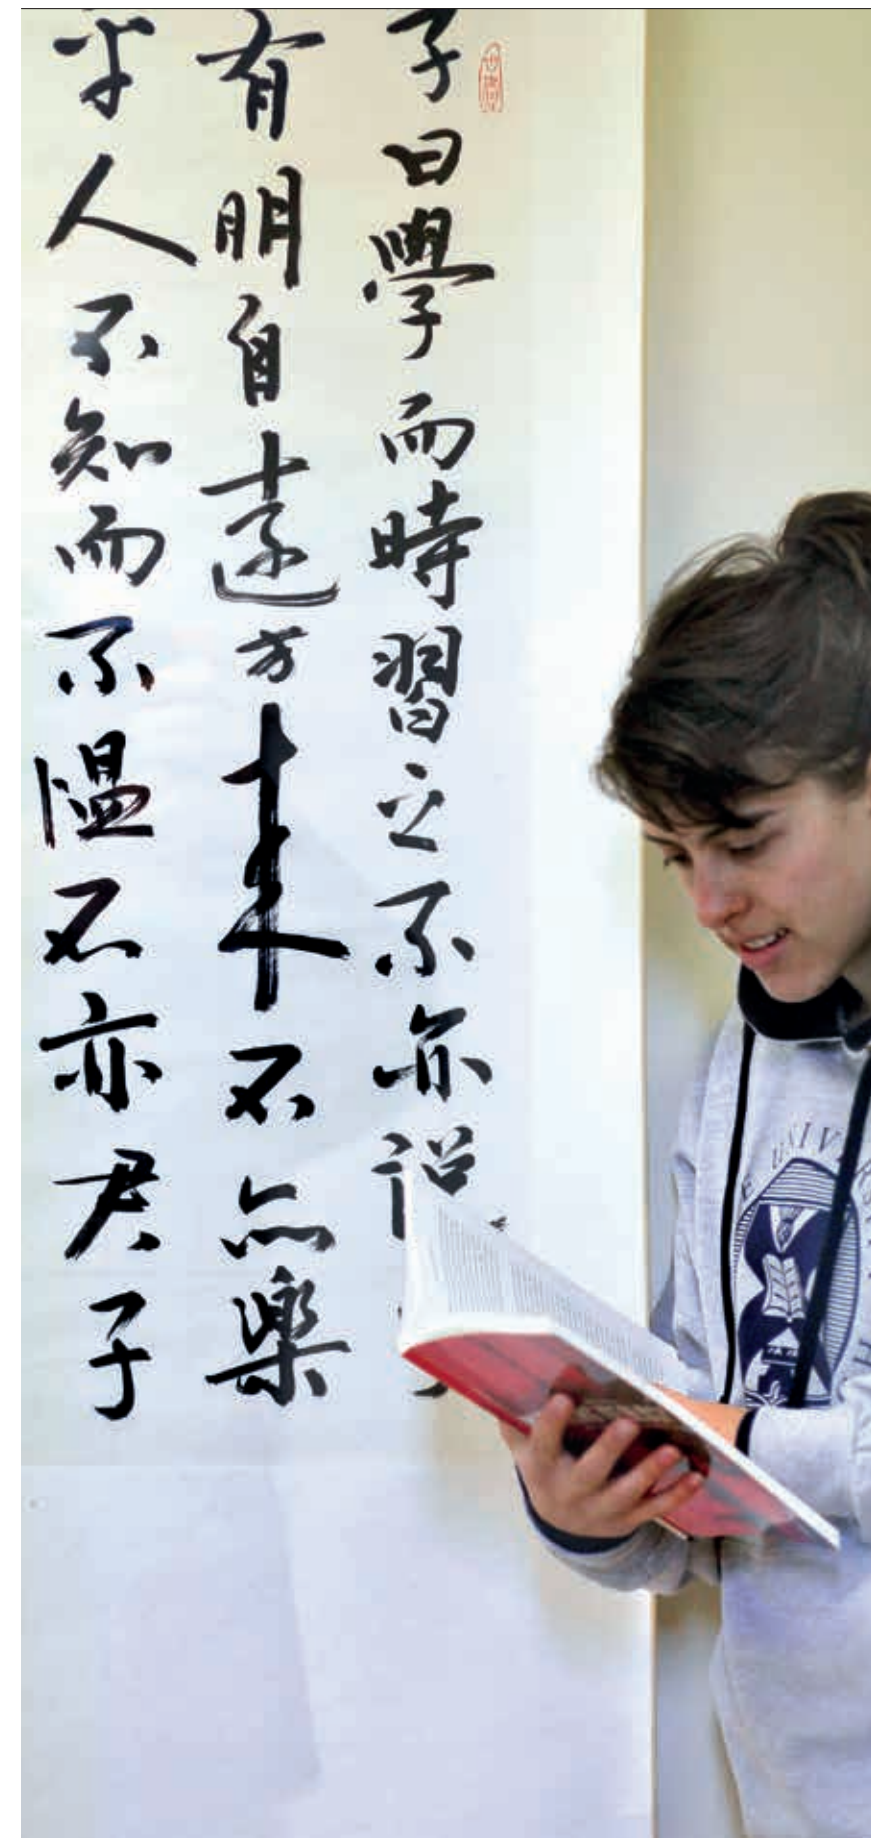 子曰學而時習之不亦説
有朋自遠方来不亦樂
乎人不知而不慍不亦君子
UNIV